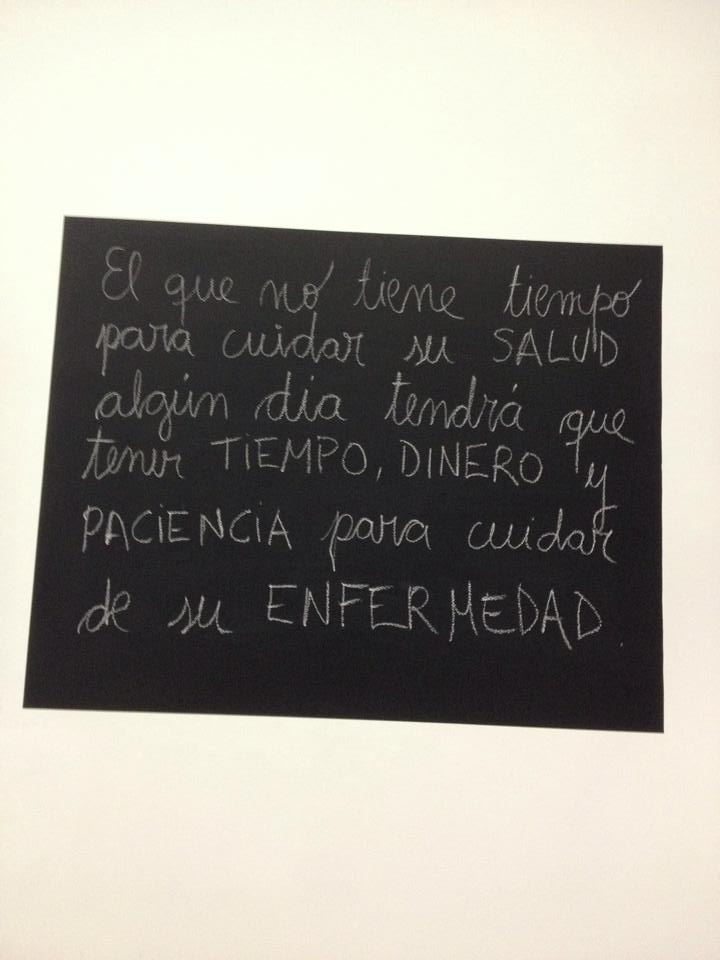 El que no tiene tiempo
para cuidar su SALUD
algún día tendrá que
tener TIEMPO, DINERO y
PACIENCIA para cuidar
de su ENFERMEDAD.